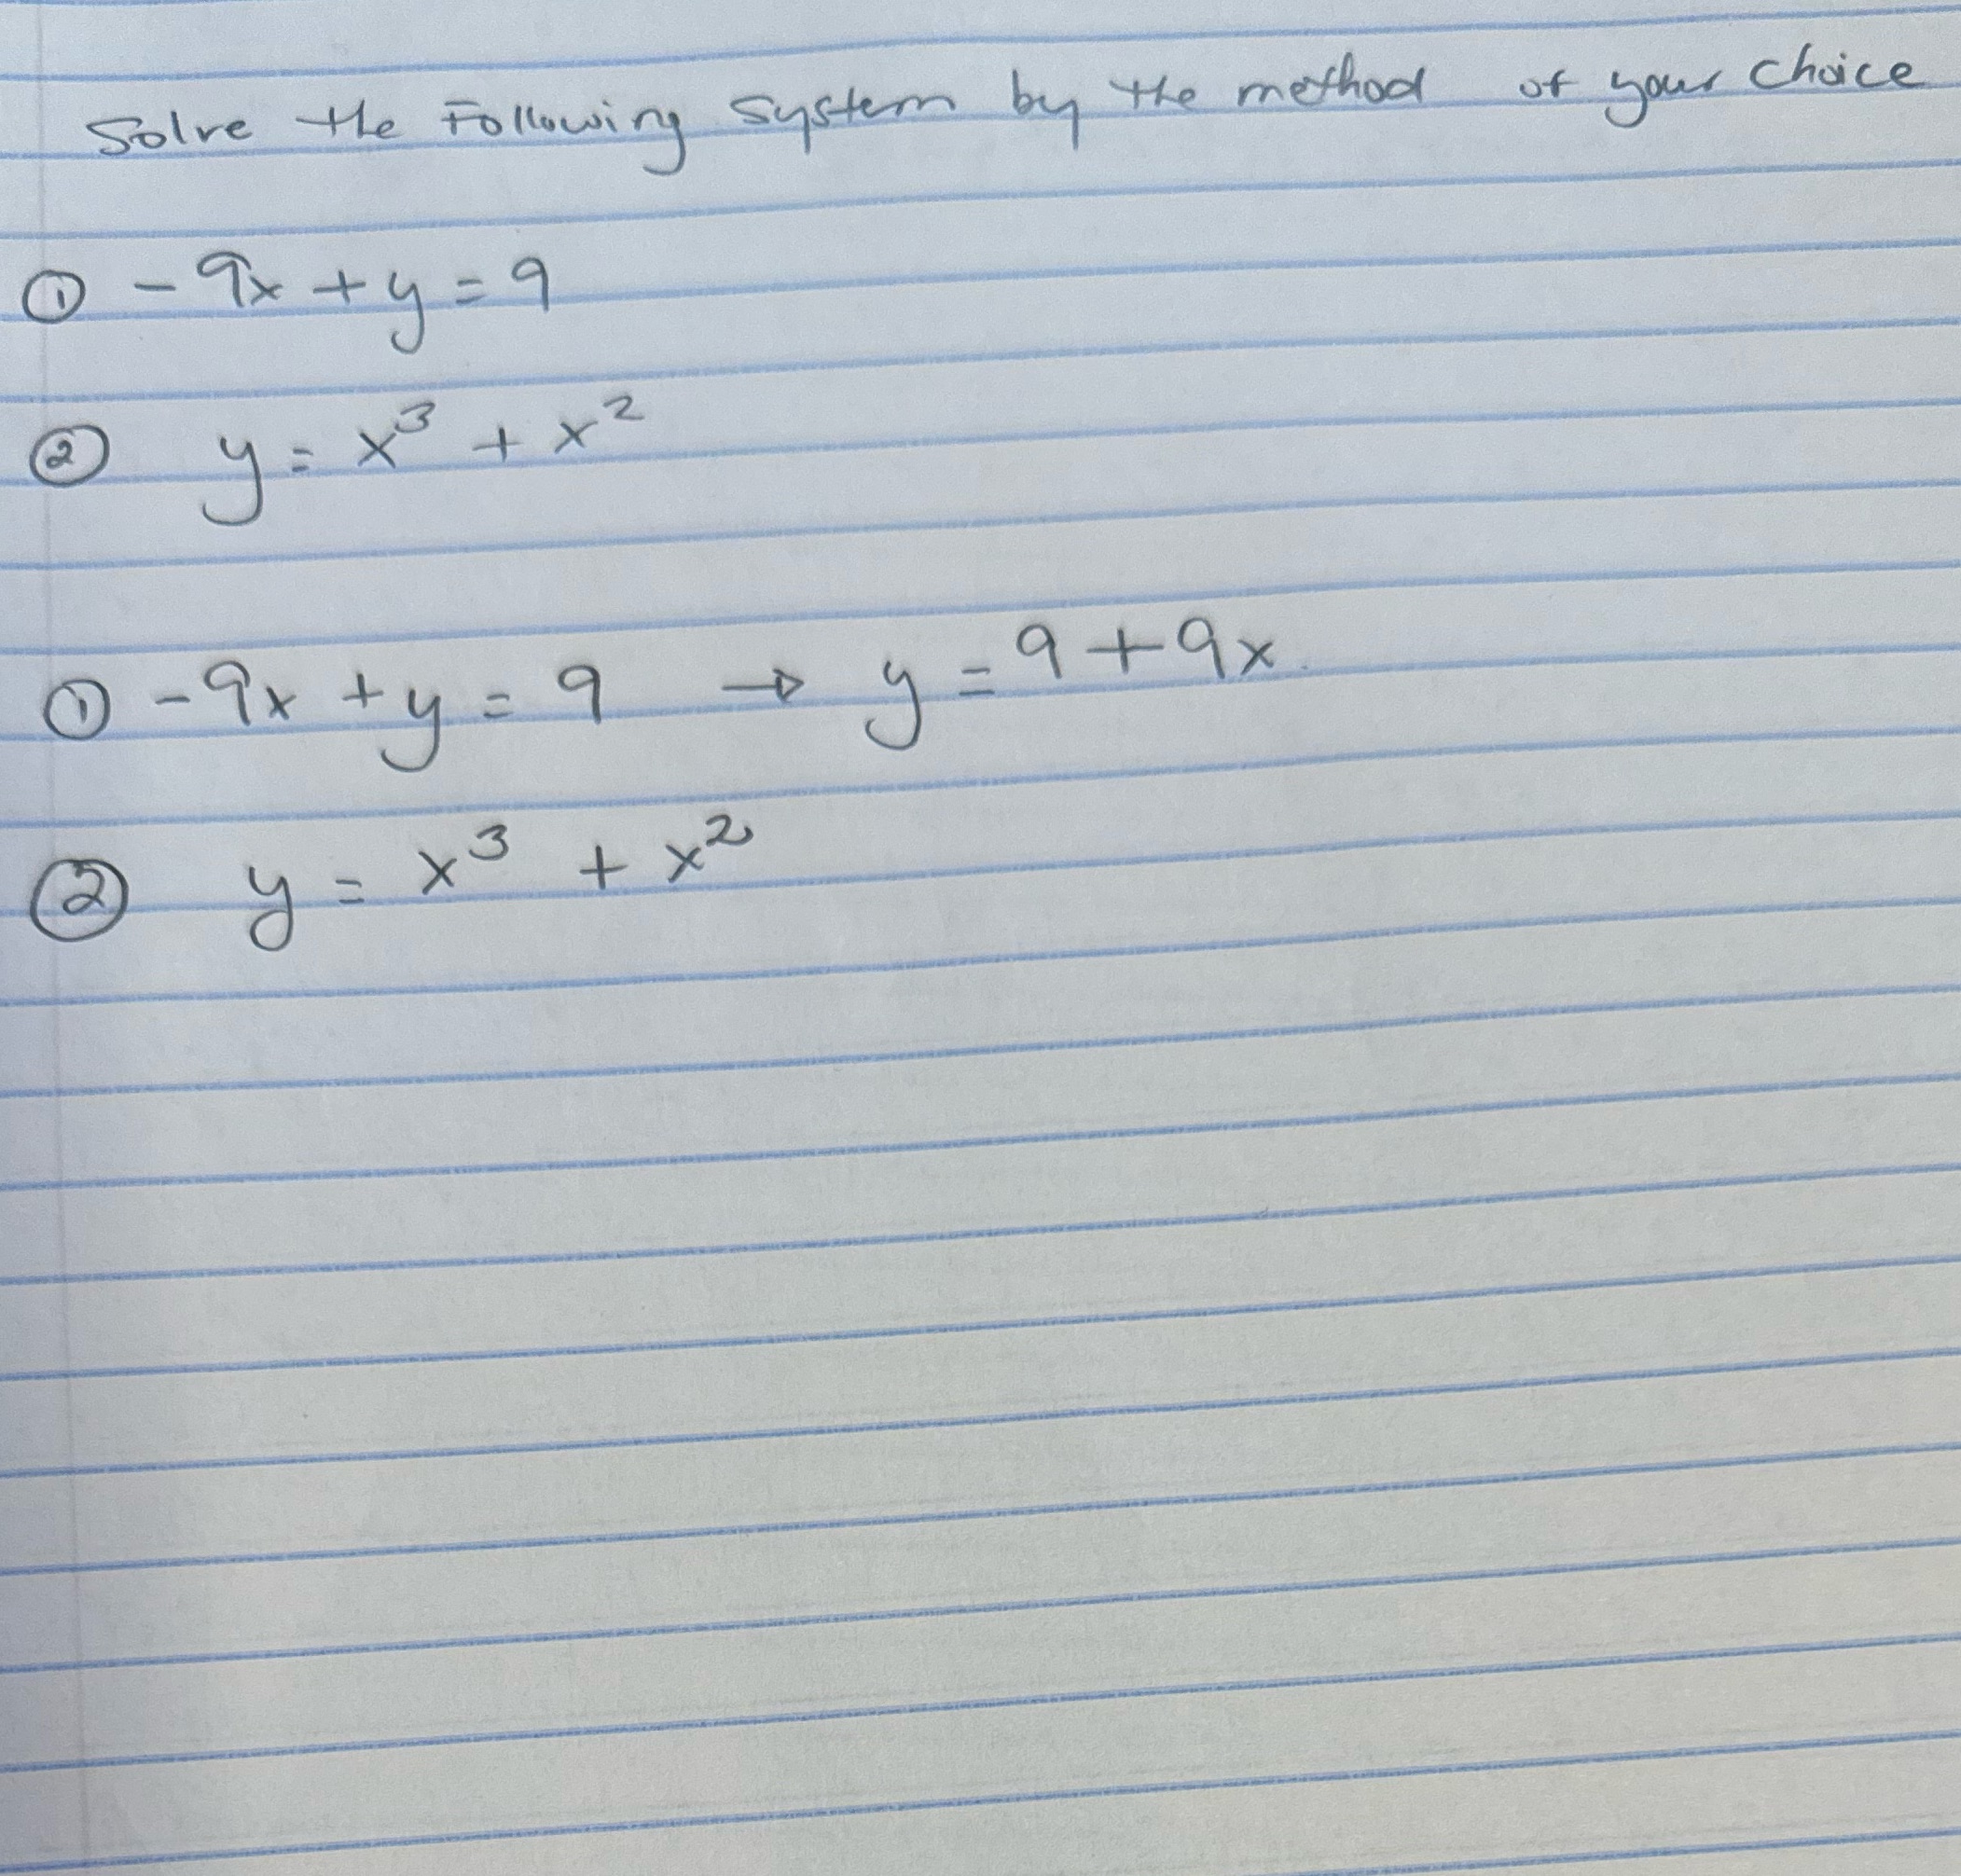 Solve the Following System by the method of your choice
① - 9x + y = 9
② y = x³ + x²
① - 9x + y = 9 → y = 9 + 9x
② y = x³ + x²